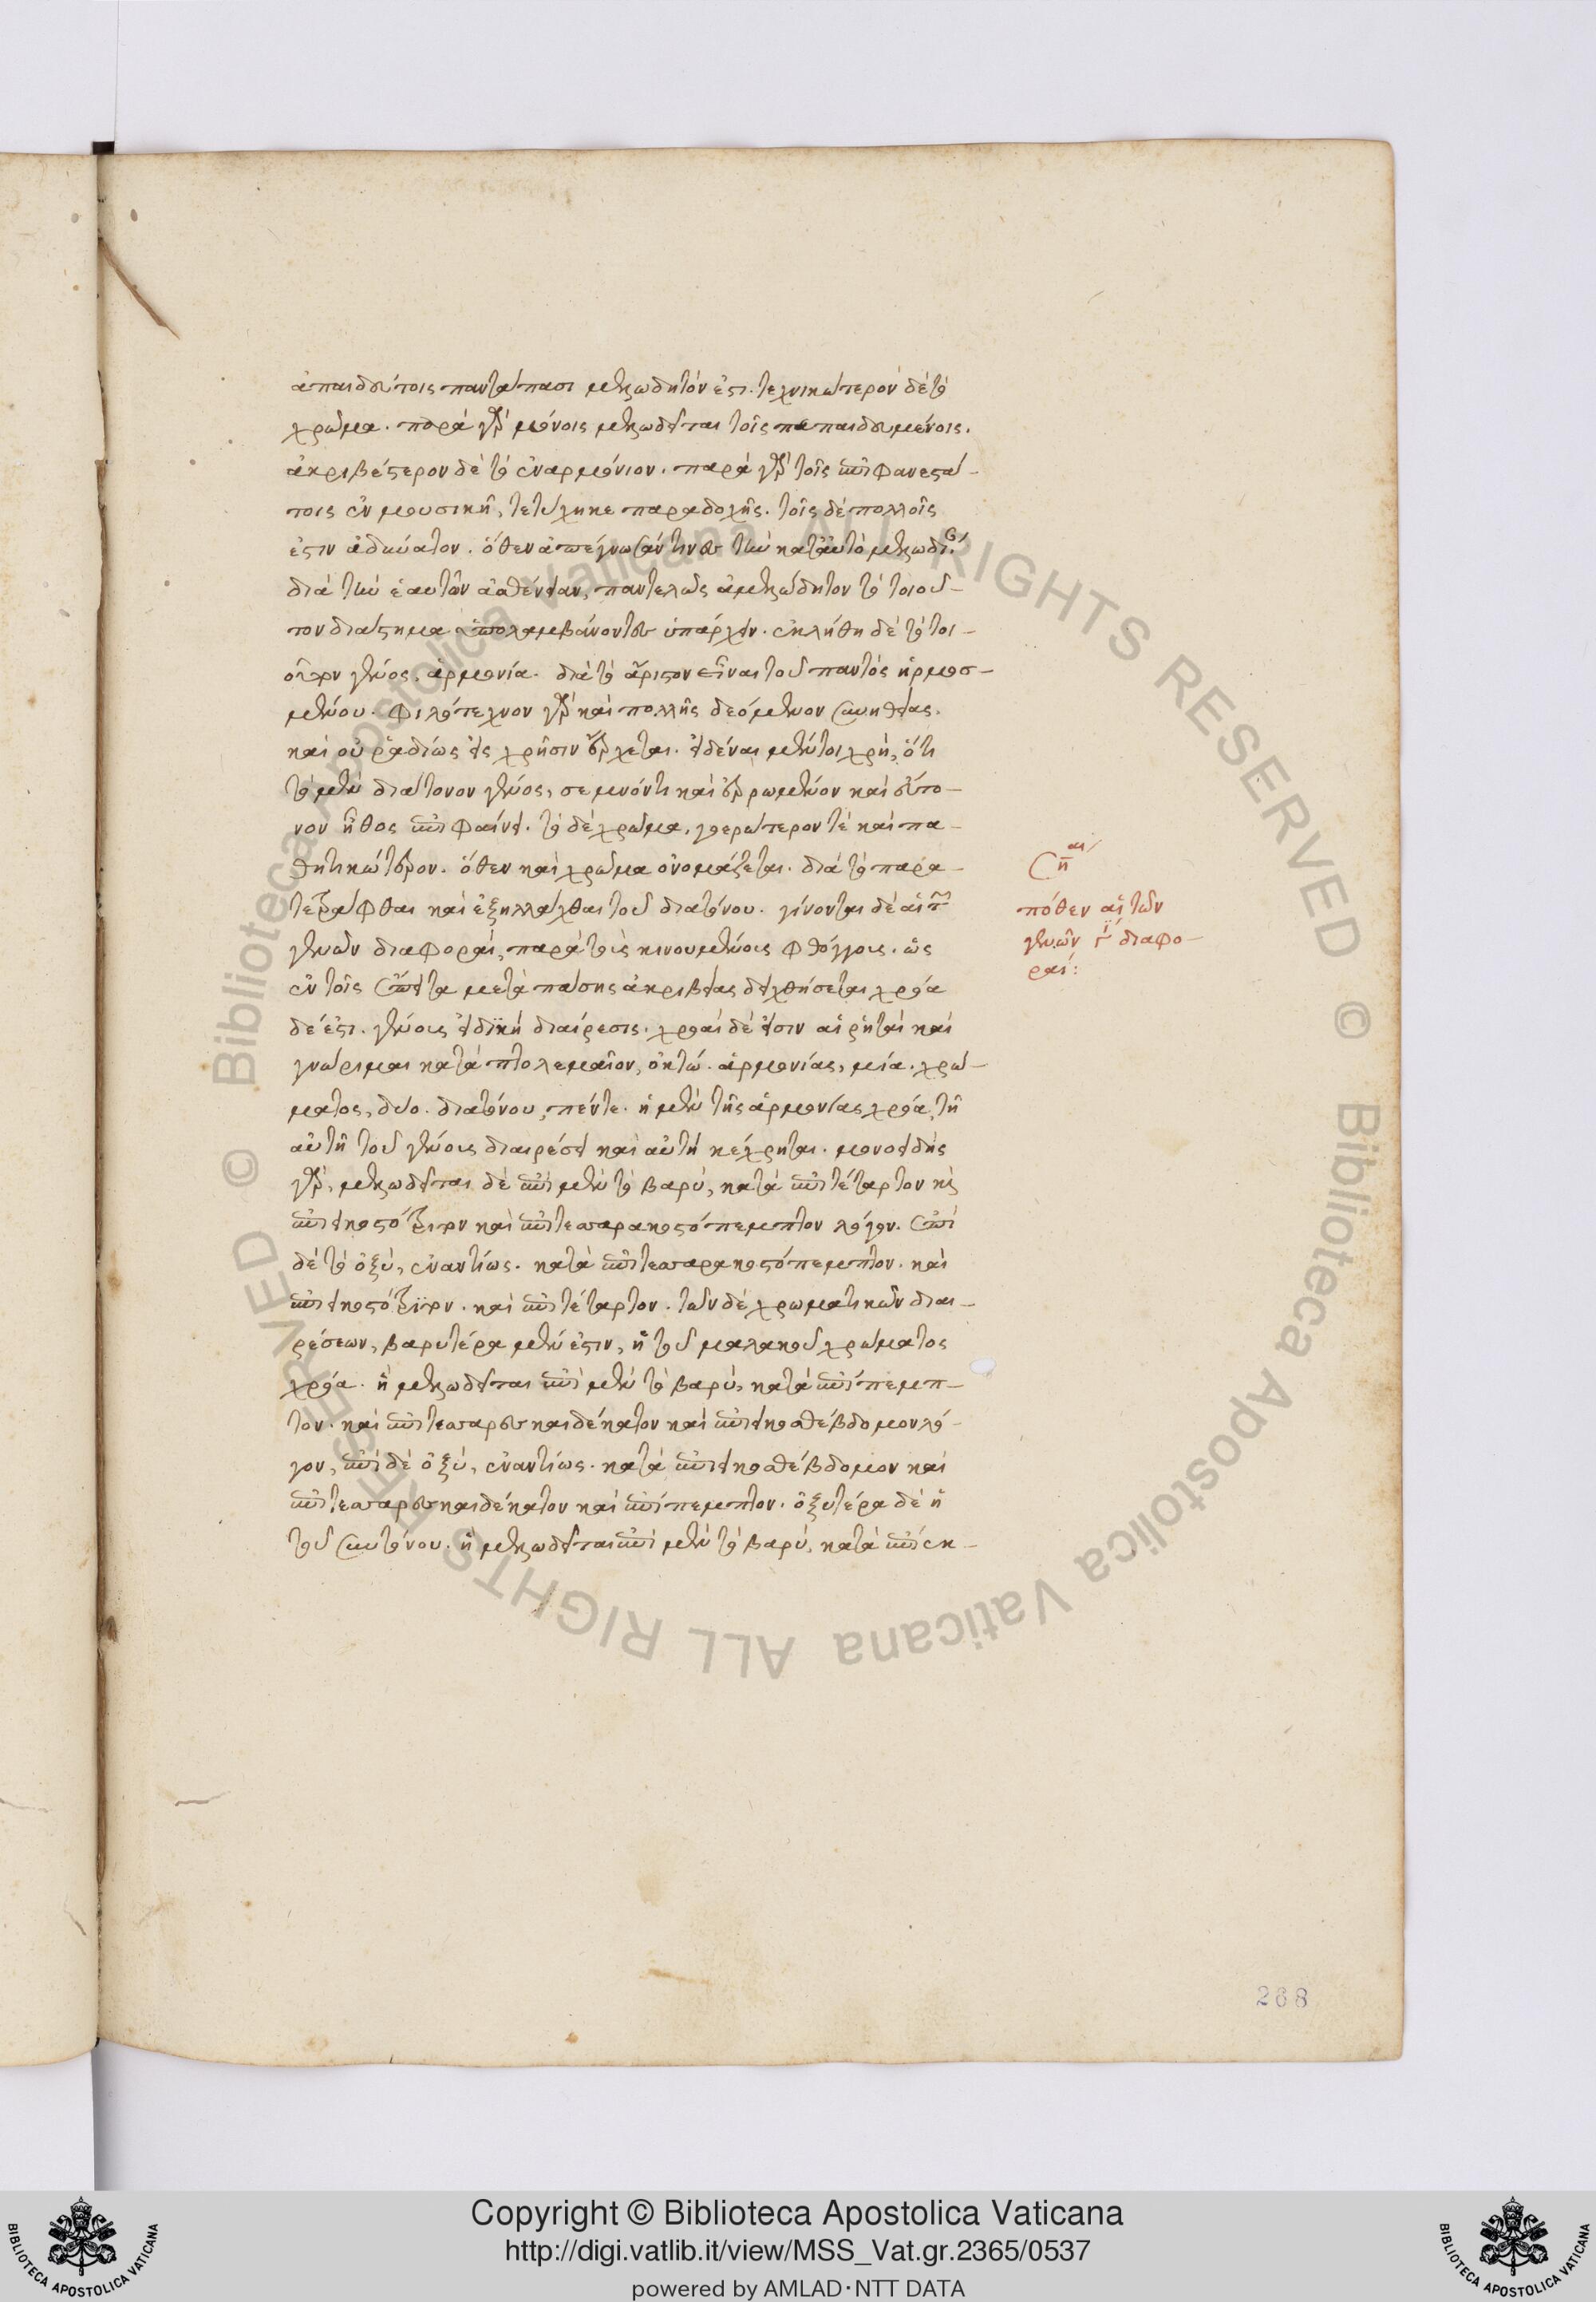 ἀπαιδεύτοις παντάπασι μελῳδητόν ἐστι. τεχνικώτερον δὲ τὸ
χρῶμα. παρὰ γὰρ μόνοις μελῳδεῖται τοῖς πεπαιδευμένοις.
ἀκριβέστερον δὲ τὸ ἐναρμόνιον. παρὰ γὰρ τοῖς ἐπιφανεστά-
τοις ἐν μουσικῇ, τετύχηκε παραδοχῆς. τοῖς δὲ πολλοῖς
ἐστιν ἀδύνατον. ὅθεν ἀπέγνωσάν τινες τὴν κατ' αὐτὸ μελῳδίαν
διὰ τὴν ἑαυτῶν ἀσθένειαν, παντελῶς ἀμελῴδητον τὸ τοιοῦ-
τον διάστημα ὑπολαμβάνοντες ὑπάρχειν. ἐκλήθη δὲ τὸ τοι-
οῦτον γένος, ἁρμονία. διὰ τὸ ἄριστον εἶναι τοῦ παντὸς ἡρμοσ-
μένου. φιλότεχνον γὰρ καὶ πολλῆς δεόμενον συνηθείας.
καὶ οὐ ῥαδίως εἰς χρῆσιν ἔρχεται. εἰδέναι μέντοι χρὴ, ὅτι
τὸ μὲν διάτονον γένος, σεμνόν τι καὶ ἐρρωμένον καὶ εὔτο-
νον ἦθος ἐπιφαίνει. τὸ δὲ χρῶμα, γοερώτερον τὲ καὶ πα-
θητικώτερον. ὅθεν καὶ χρῶμα ὀνομάζεται. διὰ τὸ παρα-
τετράφθαι καὶ ἐξηλλάχθαι τοῦ διατόνου. γίνονται δὲ αἱ τῶν
γενῶν διαφοραὶ, παρὰ τοὺς κινουμένους φθόγγους. ὡς
ἐν τοῖς ἔπειτα μετὰ πάσης ἀκριβείας δειχθήσεται χρόα
δέ ἐστι. γένους εἰδικὴ διαίρεσις. χρόαι δέ εἰσιν αἱ ῥηταὶ καὶ
γνώριμαι κατὰ πτολεμαῖον, ὀκτώ. ἁρμονίας, μία. χρώ-
ματος, δύο. διατόνου, πέντε. ἡ μὲν τῆς ἁρμονίας χρόα, τῇ
αὐτῇ τοῦ γένους διαιρέσει καὶ αὐτὴ κέχρηται. μονοειδὴς
γὰρ, μελῳδεῖται δὲ ἐπὶ μὲν τὸ βαρὺ, κατὰ ἐπιτέταρτον καὶ
ἐπιεικοστότριτον καὶ ἐπιτεσσαρακοστόπεμπτον λόγον. ἐπὶ
δὲ τὸ ὀξὺ, ἐναντίως. κατὰ ἐπιτεσσαρακοστόπεμπτον. καὶ
ἐπιεικοστότριτον. καὶ ἐπιτέταρτον. τῶν δὲ χρωματικῶν διαι-
ρέσεων, βαρυτέρα μέν ἐστιν, ἡ τοῦ μαλακοῦ χρώματος
χρόα. ἣ μελῳδεῖται ἐπὶ μὲν τὸ βαρὺ, κατὰ ἐπίπεμπ-
τον. καὶ ἐπιτεσσαρεσκαιδέκατον καὶ ἐπιεικοσθέβδομον λό-
γον, ἐπὶ δὲ ὀξὺ, ἐναντίως. κατὰ ἐπιεικοσθέβδομον καὶ
ἐπιτεσσαρεσκαιδέκατον καὶ ἐπίπεμπτον. ὀξυτέρα δὲ ἡ
τοῦ συντόνου. ἣ μελῳδεῖται ἐπὶ μὲν τὸ βαρὺ, κατὰ ἐπιεκ-
πόθεν αἱ τῶν
γενῶν γ΄ διαφο-
ραί:
268
© Biblioteca Apostolica Vaticana ALL RIGHTS RESERVED © Biblioteca Apostolica Vaticana ALL RIGHTS RESERVED
Copyright © Biblioteca Apostolica Vaticana
http://digi.vatlib.it/view/MSS_Vat.gr.2365/0537
powered by AMLAD·NTT DATA
BIBLIOTECA APOSTOLICA VATICANA
BIBLIOTECA APOSTOLICA VATICANA